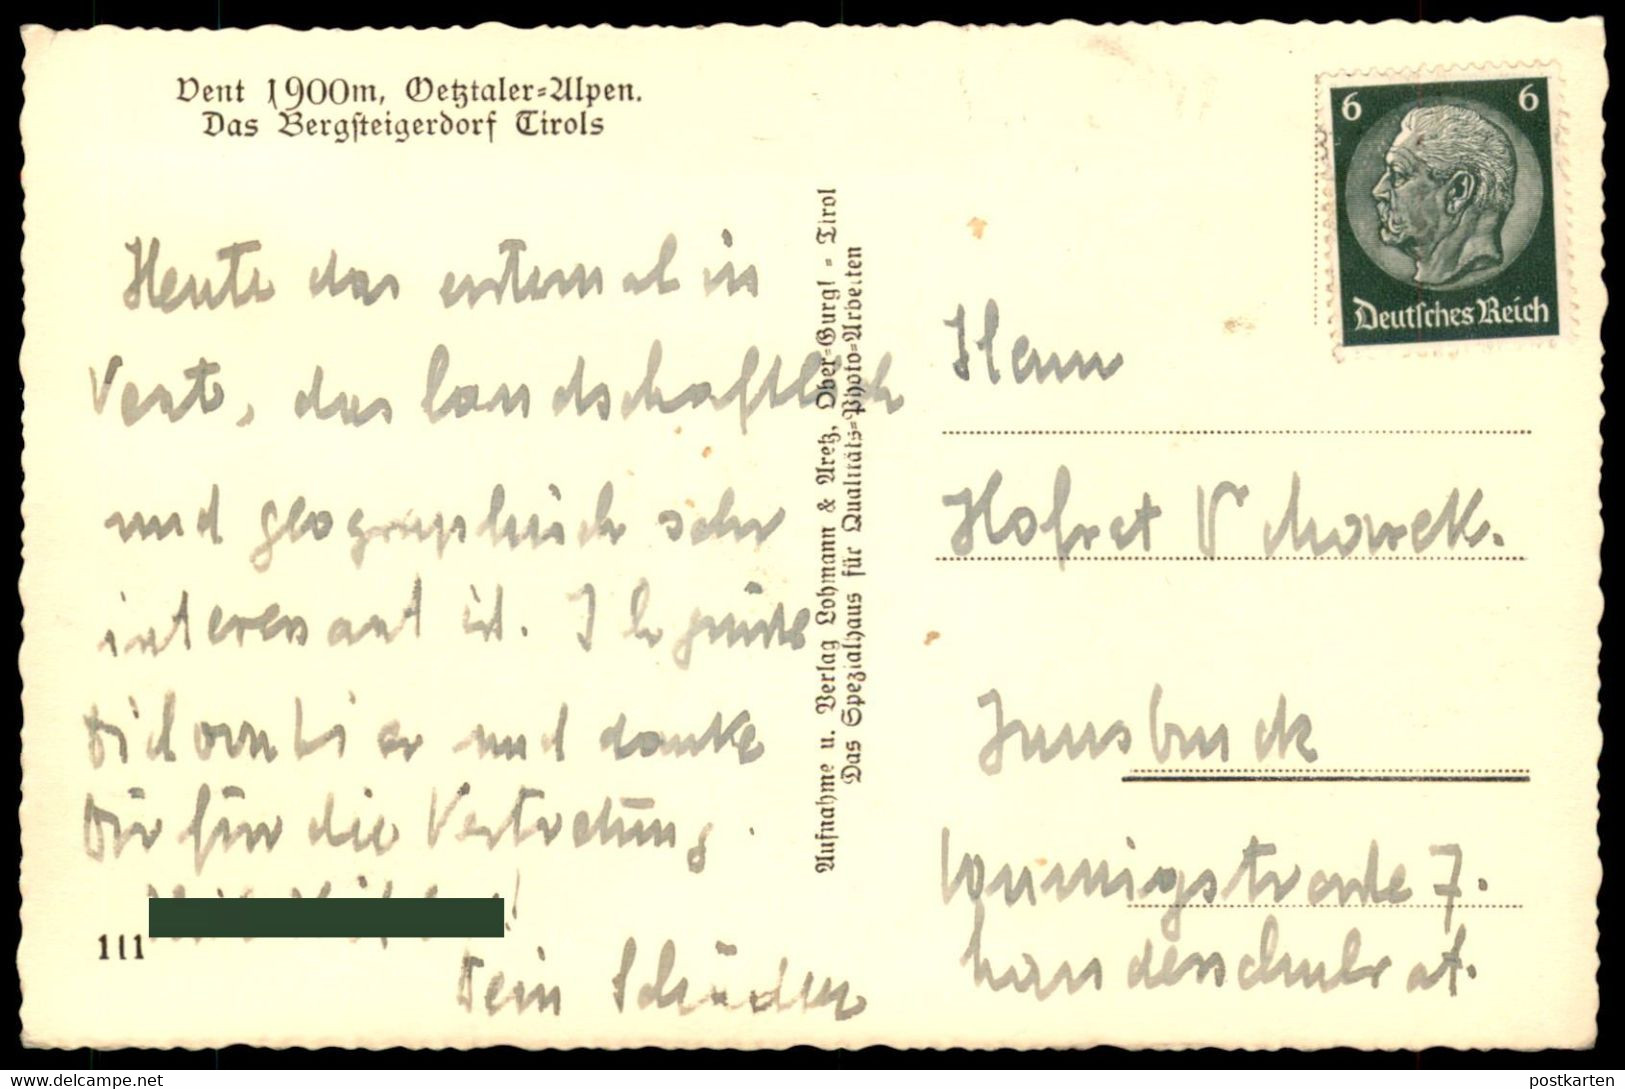 Vent 1900m, Oetztaler-Alpen.
Das Bergsteigerdorf Tirols
Heute das erstemal in
Vent, das landschaftlich
und geographisch sehr
interessant ist. Ich grüße
Dich von hier und danke
Dir für die Vertretung.
Dein
111
Aufnahme u. Verlag Lohmann & Aretz, Ober-Gurgl - Tirol
Das Spezialhaus für Qualitäts-Photo-Arbeiten
6 6
Deutsches Reich
Herrn
Hofrat
Innsbruck
7.
Landesschulrat.
postkarten